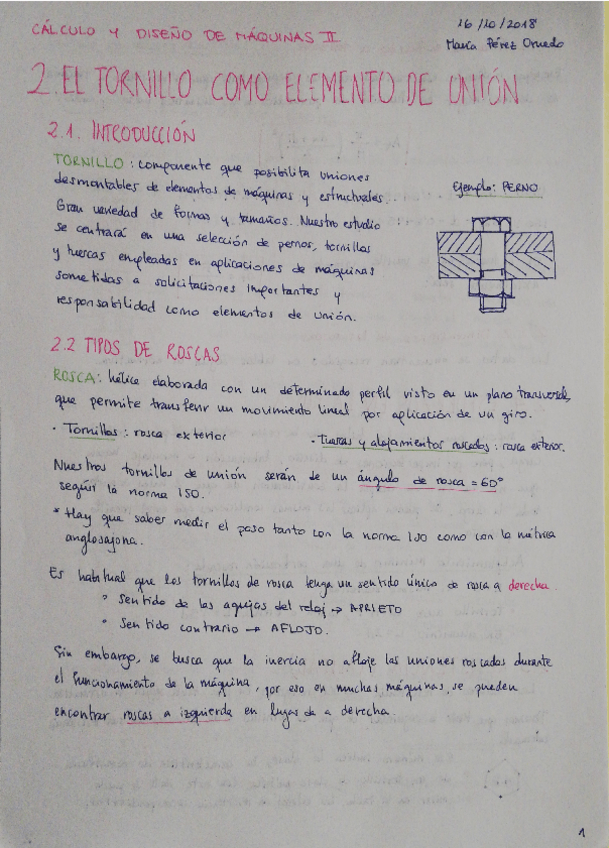 CÁLCULO Y DISEÑO DE MÁQUINAS II
16/10/2018
María Pérez Ornedo
2. EL TORNILLO COMO ELEMENTO DE UNIÓN
2.1. INTRODUCCIÓN
TORNILLO: componente que posibilita uniones
desmontables de elementos de máquinas y estructurales.
Gran variedad de formas y tamaños. Nuestro estudio
se centrará en una selección de pernos, tornillos
y tuercas empleadas en aplicaciones de máquinas
sometidas a solicitaciones importantes y
responsabilidad como elementos de unión.
Ejemplo: PERNO
2.2 TIPOS DE ROSCAS
ROSCA: hélice elaborada con un determinado perfil visto en un plano transversal,
que permite transferir un movimiento lineal por aplicación de un giro.
· Tornillos: rosca exterior
· Tuercas y alojamientos roscados: rosca exterior.
Nuestros tornillos de unión serán de un ángulo de rosca = 60°
según la norma ISO.
* Hay que saber medir el paso tanto con la norma ISO como con la métrica
anglosajona.
Es habitual que los tornillos de rosca tenga un sentido único de rosca a derecha.
° Sentido de las agujas del reloj → APRIETO
° Sentido contrario → AFLOJO.
Sin embargo, se busca que la inercia no afloje las uniones roscadas durante
el funcionamiento de la máquina, por eso en muchas máquinas, se pueden
encontrar roscas a izquierda en lugar de a derecha.
1